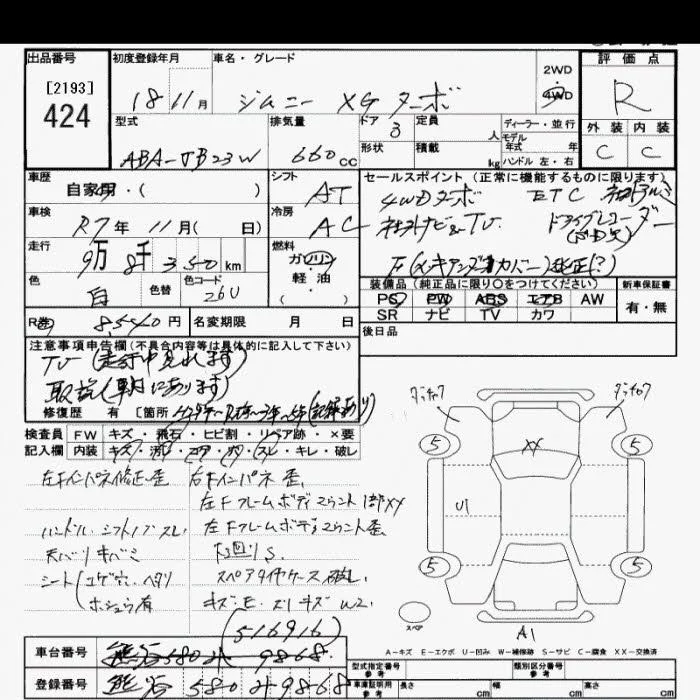 出品番号
[2193]
424
初度登録年月
18 11月
車名・グレード
ジムニー XG ターボ
2WD
4WD
評価点
R
外装 内装
C C
型式
ABA-JB23W
排気量
660cc
ドア
3
定員
人
形状
積載
kg
ディーラー・並行
モデル
年式 年
ハンドル 左・右
車歴
自家用・( )
シフト
AT
車検
R7年 11月( 日)
冷房
AC
走行
9万 8千 350km
燃料
ガソリン
軽油
( )
色
白
色替
色コード
26U
R券 8,540円
名変期限 月 日
セールスポイント(正常に機能するものに限ります)
4WDターボ ETC 社外アルミ
社外ナビ&TV ドライブレコーダー
装備品(純正品に限り○をつけてください)
PS PW ABS エアB AW
SR ナビ TV カワ
新車保証書
有・無
後日品
注意事項申告欄(不具合内容等は具体的に記入して下さい)
TV(走行中見れます)
取説(車内にあります)
修復歴 有 [箇所
検査員 FW キズ・飛石・ヒビ割・リペア跡・×要
記入欄 内装 キズ・汚レ・コゲ・穴・スレ・キレ・破レ
左Fインパネ修正歪 右Fインパネ歪
左Fフレームボディマウント1部XX
ハンドル・シフトノブスレ 左Fフレームボディマウント歪
天バリキバミ 下回りS
シート(コゲ穴、ヘタリ スペアタイヤケース破レ
ホシュウ有 キズ・E・スリキズW2
ダッチャク ダッチャク
5 5
XX
U1
5 5
スペア
A1
(516916)
A-キズ E-エクボ U-凹み W-補修跡 S-サビ C-腐食 XX-交換済
車台番号
登録番号 熊谷 580 9868
型式指定番号
参考
類別区分番号
参考
車庫証明用
参考
長さ cm 幅 cm 高さ cm